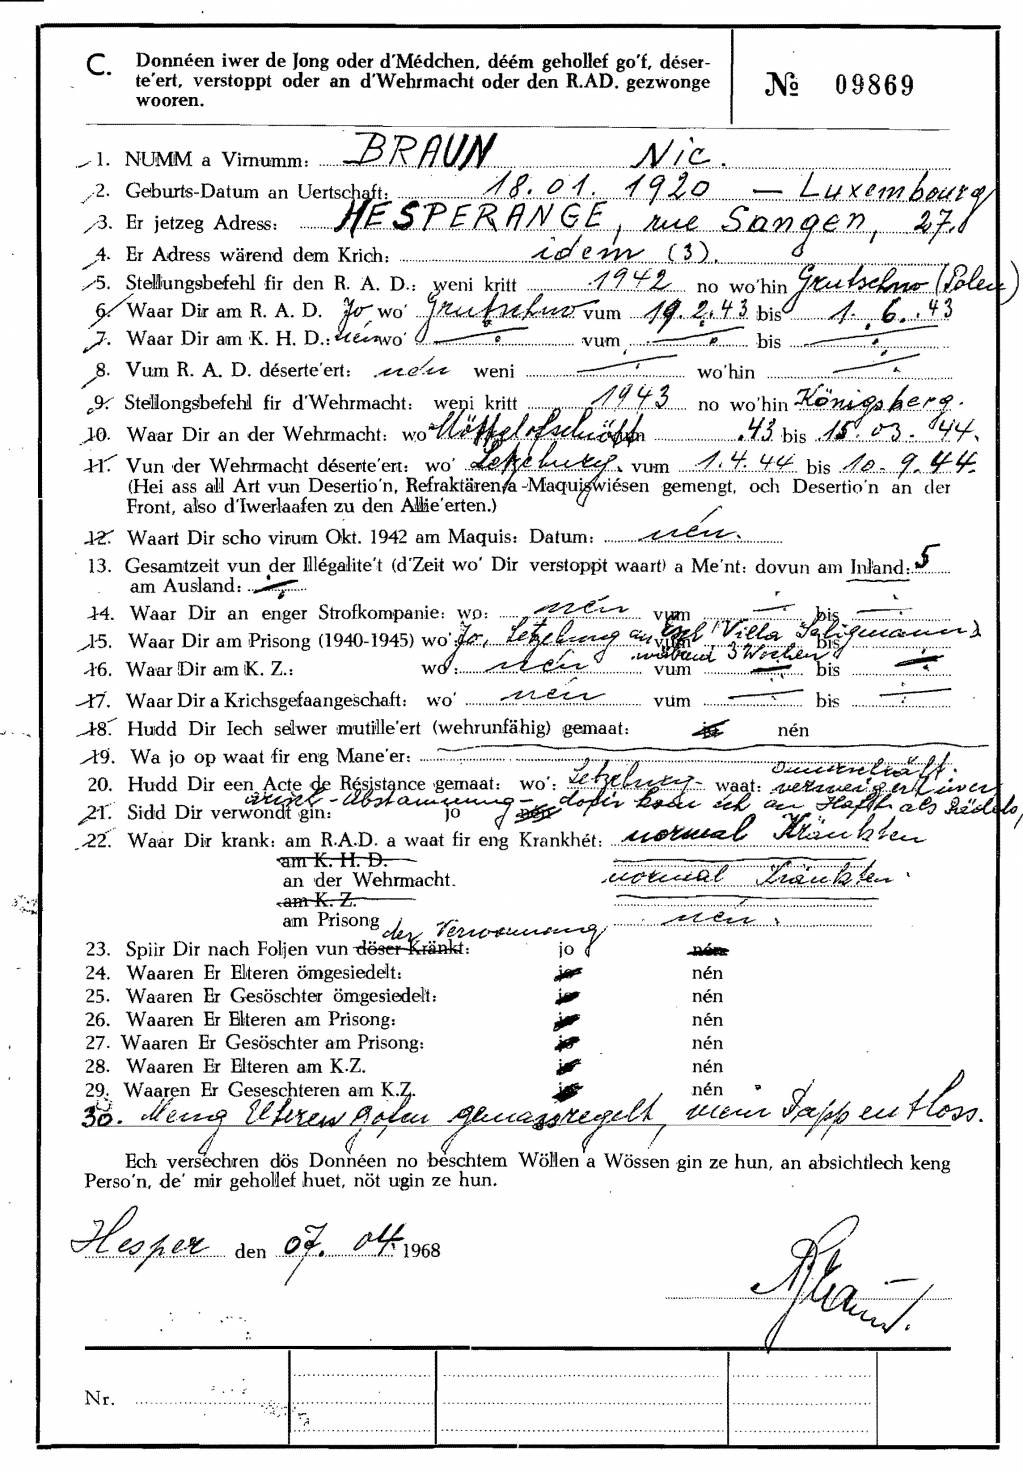 C. Donnéen iwer de Jong oder d'Médchen, déém gehollef go'f, déser-
te'ert, verstoppt oder an d'Wehrmacht oder den R.AD. gezwonge
wooren.
№ 09869
1. NUMM a Virnumm: BRAUN Nic.
2. Geburts-Datum an Uertschaft: 18.01.1920 — Luxembourg
3. Er jetzeg Adress: HESPERANGE, rue Sangen, 27.
4. Er Adress wärend dem Krich: idem (3).
5. Stellungsbefehl fir den R. A. D.: weni kritt 1942 no wo'hin Grutschno (Polen)
6. Waar Dir am R. A. D. Jo wo' Grutschno vum 19.2.43 bis 1.6.43
7. Waar Dir am K. H. D.: nein wo' — vum — bis —
8. Vum R. A. D. déserte'ert: nén weni — wo'hin —
9. Stellongsbefehl fir d'Wehrmacht: weni kritt 1943 no wo'hin Königsberg.
10. Waar Dir an der Wehrmacht: wo .43 bis 15.03.44.
11. Vun der Wehrmacht déserte'ert: wo' Letzeburg. vum 1.4.44 bis 10.9.44.
(Hei ass all Art vun Desertio'n, Refraktären a -Maquiswiésen gemengt, och Desertio'n an der
Front, also d'Iwerlaafen zu den Allie'erten.)
12. Waart Dir scho virum Okt. 1942 am Maquis: Datum: nén.
13. Gesamtzeit vun der Illégalite't (d'Zeit wo' Dir verstoppt waart) a Me'nt: dovun am Inland: 5
am Ausland: —
14. Waar Dir an enger Strofkompanie: wo: nén vum — bis —
15. Waar Dir am Prisong (1940-1945) wo': Jo, Letzeburg an Esch (Villa Seligmann) vum bis
während 3 Wochen
16. Waar Dir am K. Z.: wo: nén vum — bis —
17. Waar Dir a Krichsgefaangeschaft: wo' nén vum — bis —
18. Hudd Dir Iech selwer mutille'ert (wehrunfähig) gemaat: jo nén
19. Wa jo op waat fir eng Mane'er:
20. Hudd Dir een Acte de Résistance gemaat: wo': Letzeburg - waat: verweigert iwer
arisch-Abstammung - dofir koum ich an Haft als
21. Sidd Dir verwondt gin: jo nén
22. Waar Dir krank: am R.A.D. a waat fir eng Krankhét: normal Kränkten
am K. H. D.
an der Wehrmacht. normal Kränkten.
am K. Z.
am Prisong nén.
der Verwonnung
23. Spiir Dir nach Foljen vun döser Kränkt: jo nén
24. Waaren Er Elteren ömgesiedelt: jo nén
25. Waaren Er Gesöschter ömgesiedelt: jo nén
26. Waaren Er Elteren am Prisong: jo nén
27. Waaren Er Gesöschter am Prisong: jo nén
28. Waaren Er Elteren am K.Z. jo nén
29. Waaren Er Geseschteren am K.Z. jo nén
30. Meng Elteren gofen gemassregelt, mein Papp entloss.
Ech versechren dös Donnéen no beschtem Wöllen a Wössen gin ze hun, an absichtlech keng
Perso'n, de' mir gehollef huet, nöt ugin ze hun.
Hesper den 07. Okt. 1968
NBraun.
Nr.